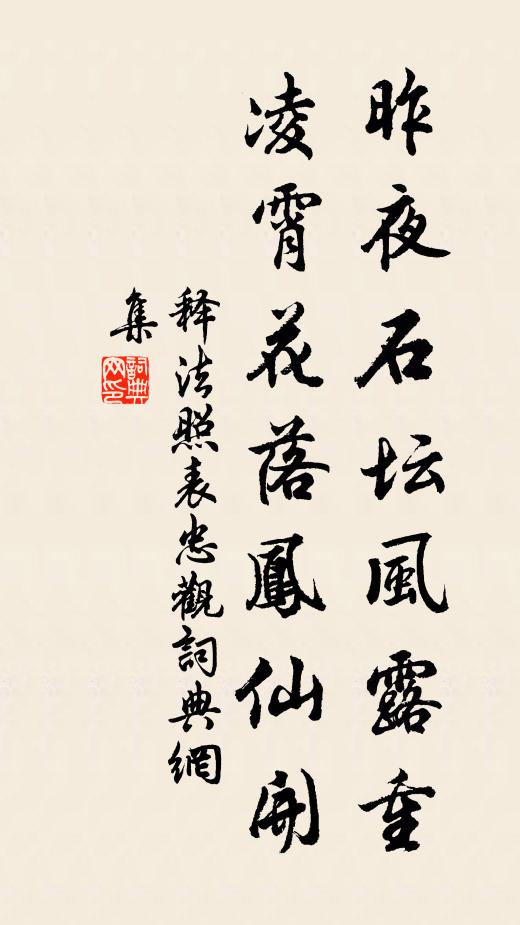 昨夜石坛風露重
凌霄花落鳳仙開
释法照表忠觀詞典網
集
詞典网印